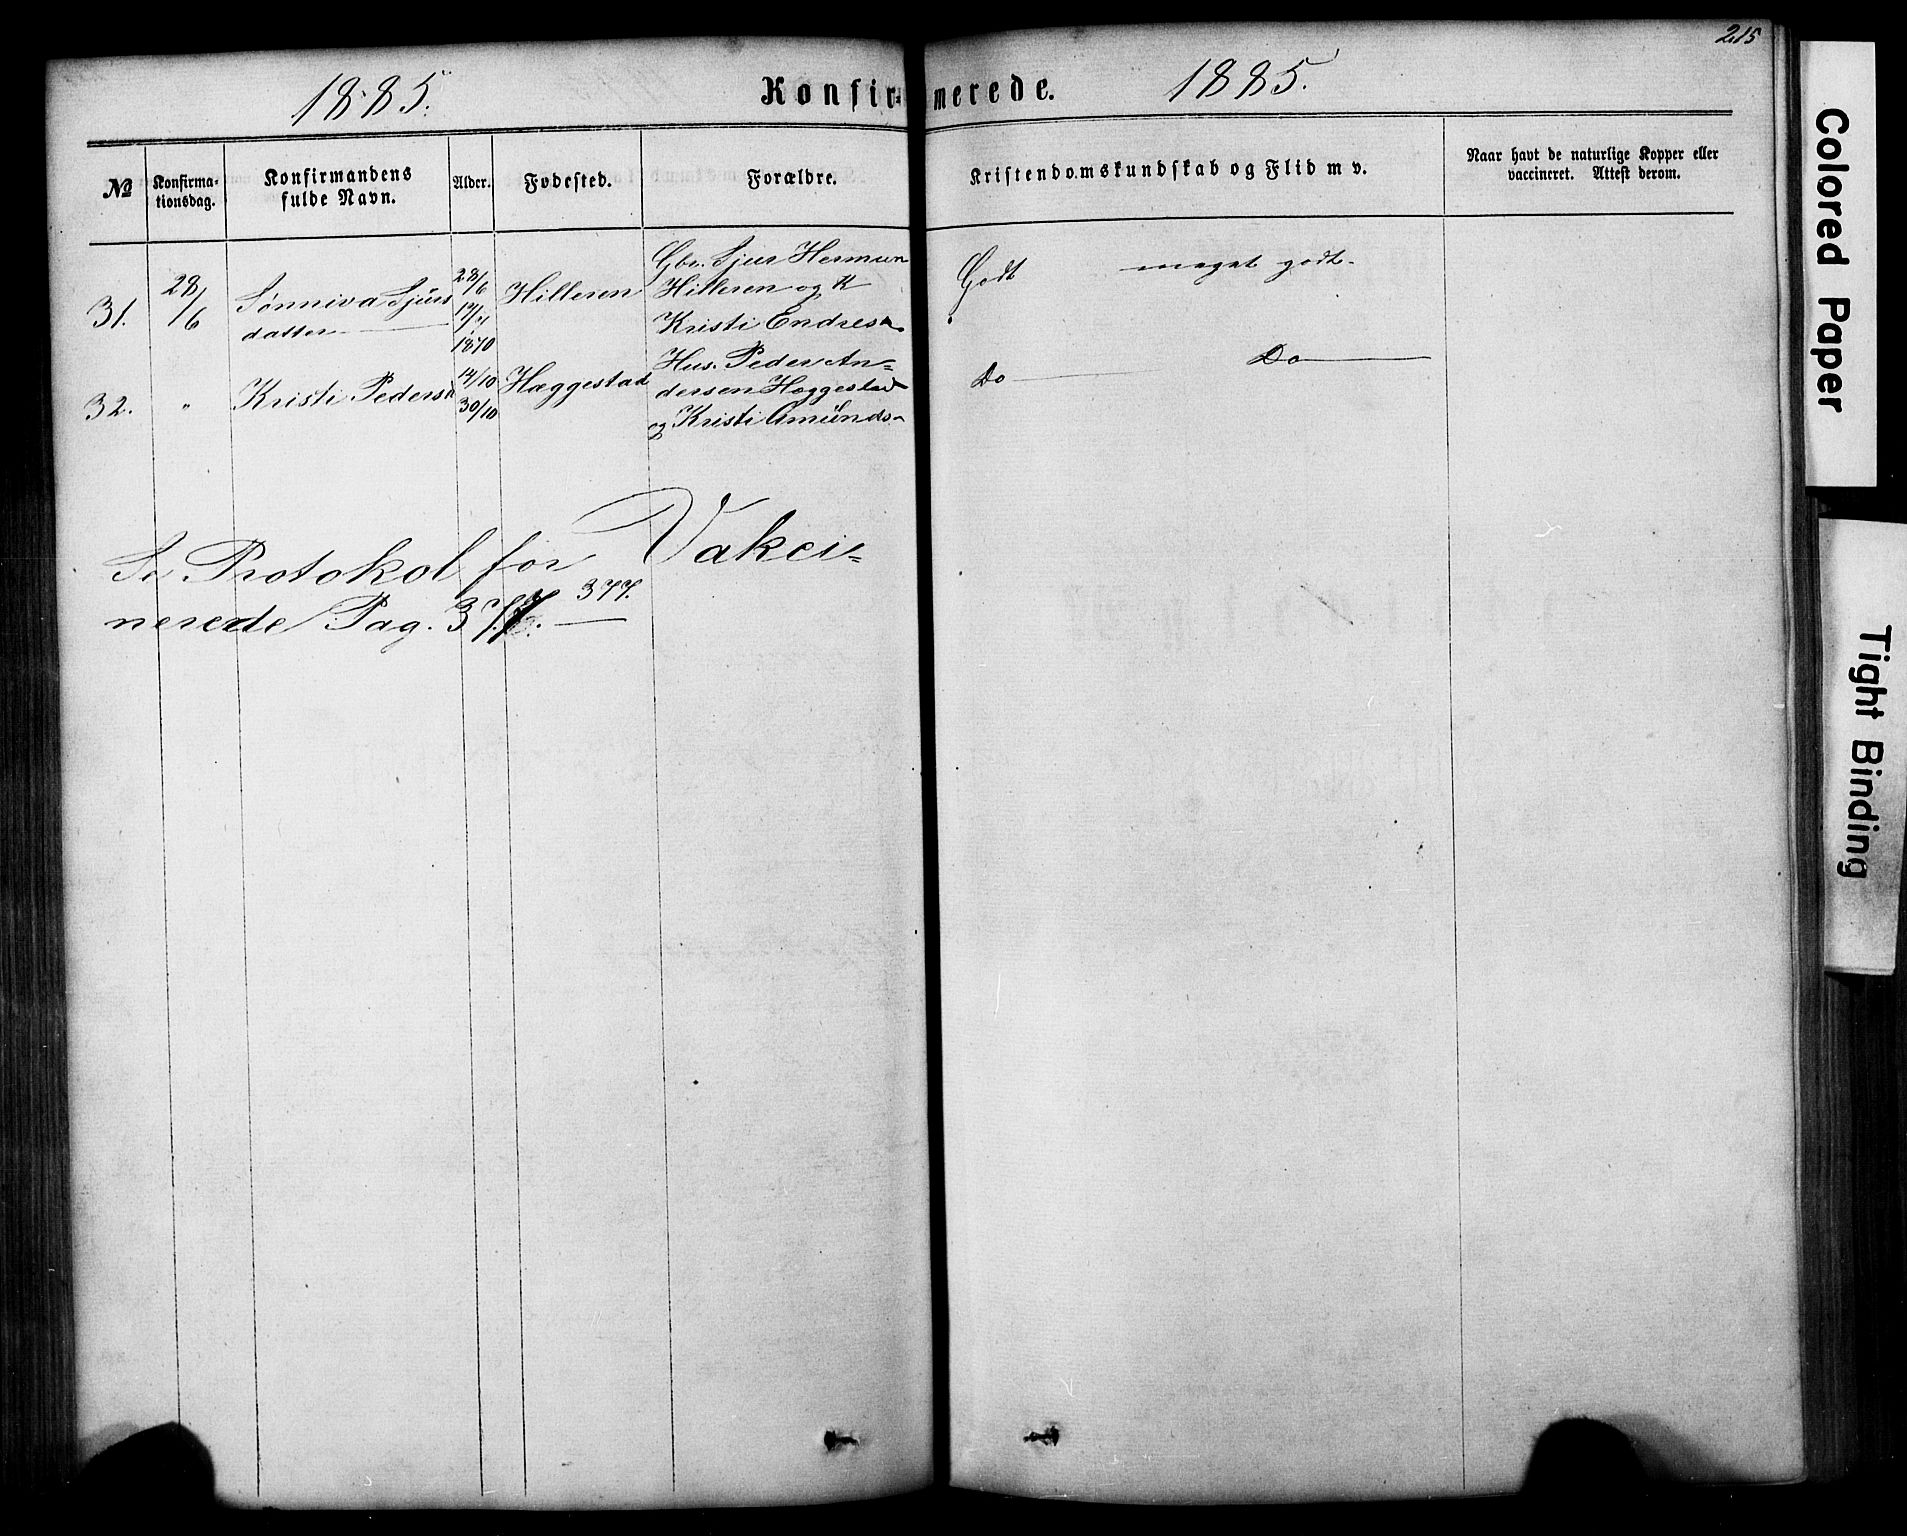 215
1885.
Konfirmerede.
1885.
№
Konfirma-
tionsdag.
Konfirmandens
fulde Navn.
Alder.
Fødested.
Forældre.
Kristendomskundskab og Flid m v.
Naar havt de naturlige Kopper eller
vaccineret. Attest derom.
31.
28/6
Sønniva Sjurs
datter
28/6
17/7
1870
Hilleren
Gbr. Sjur Hermun
Hilleren og K
Kristi Endresd
Godt
meget godt.
32.
"
Kristi Pedersd
14/10
30/10
Hæggestad
Hus. Peder An=
dersen Hæggestad
og Kristi Amunds
Do
Do
Se Protokol for Vakci=
nerede Pag. 377. 377.
Colored Paper
Tight Binding